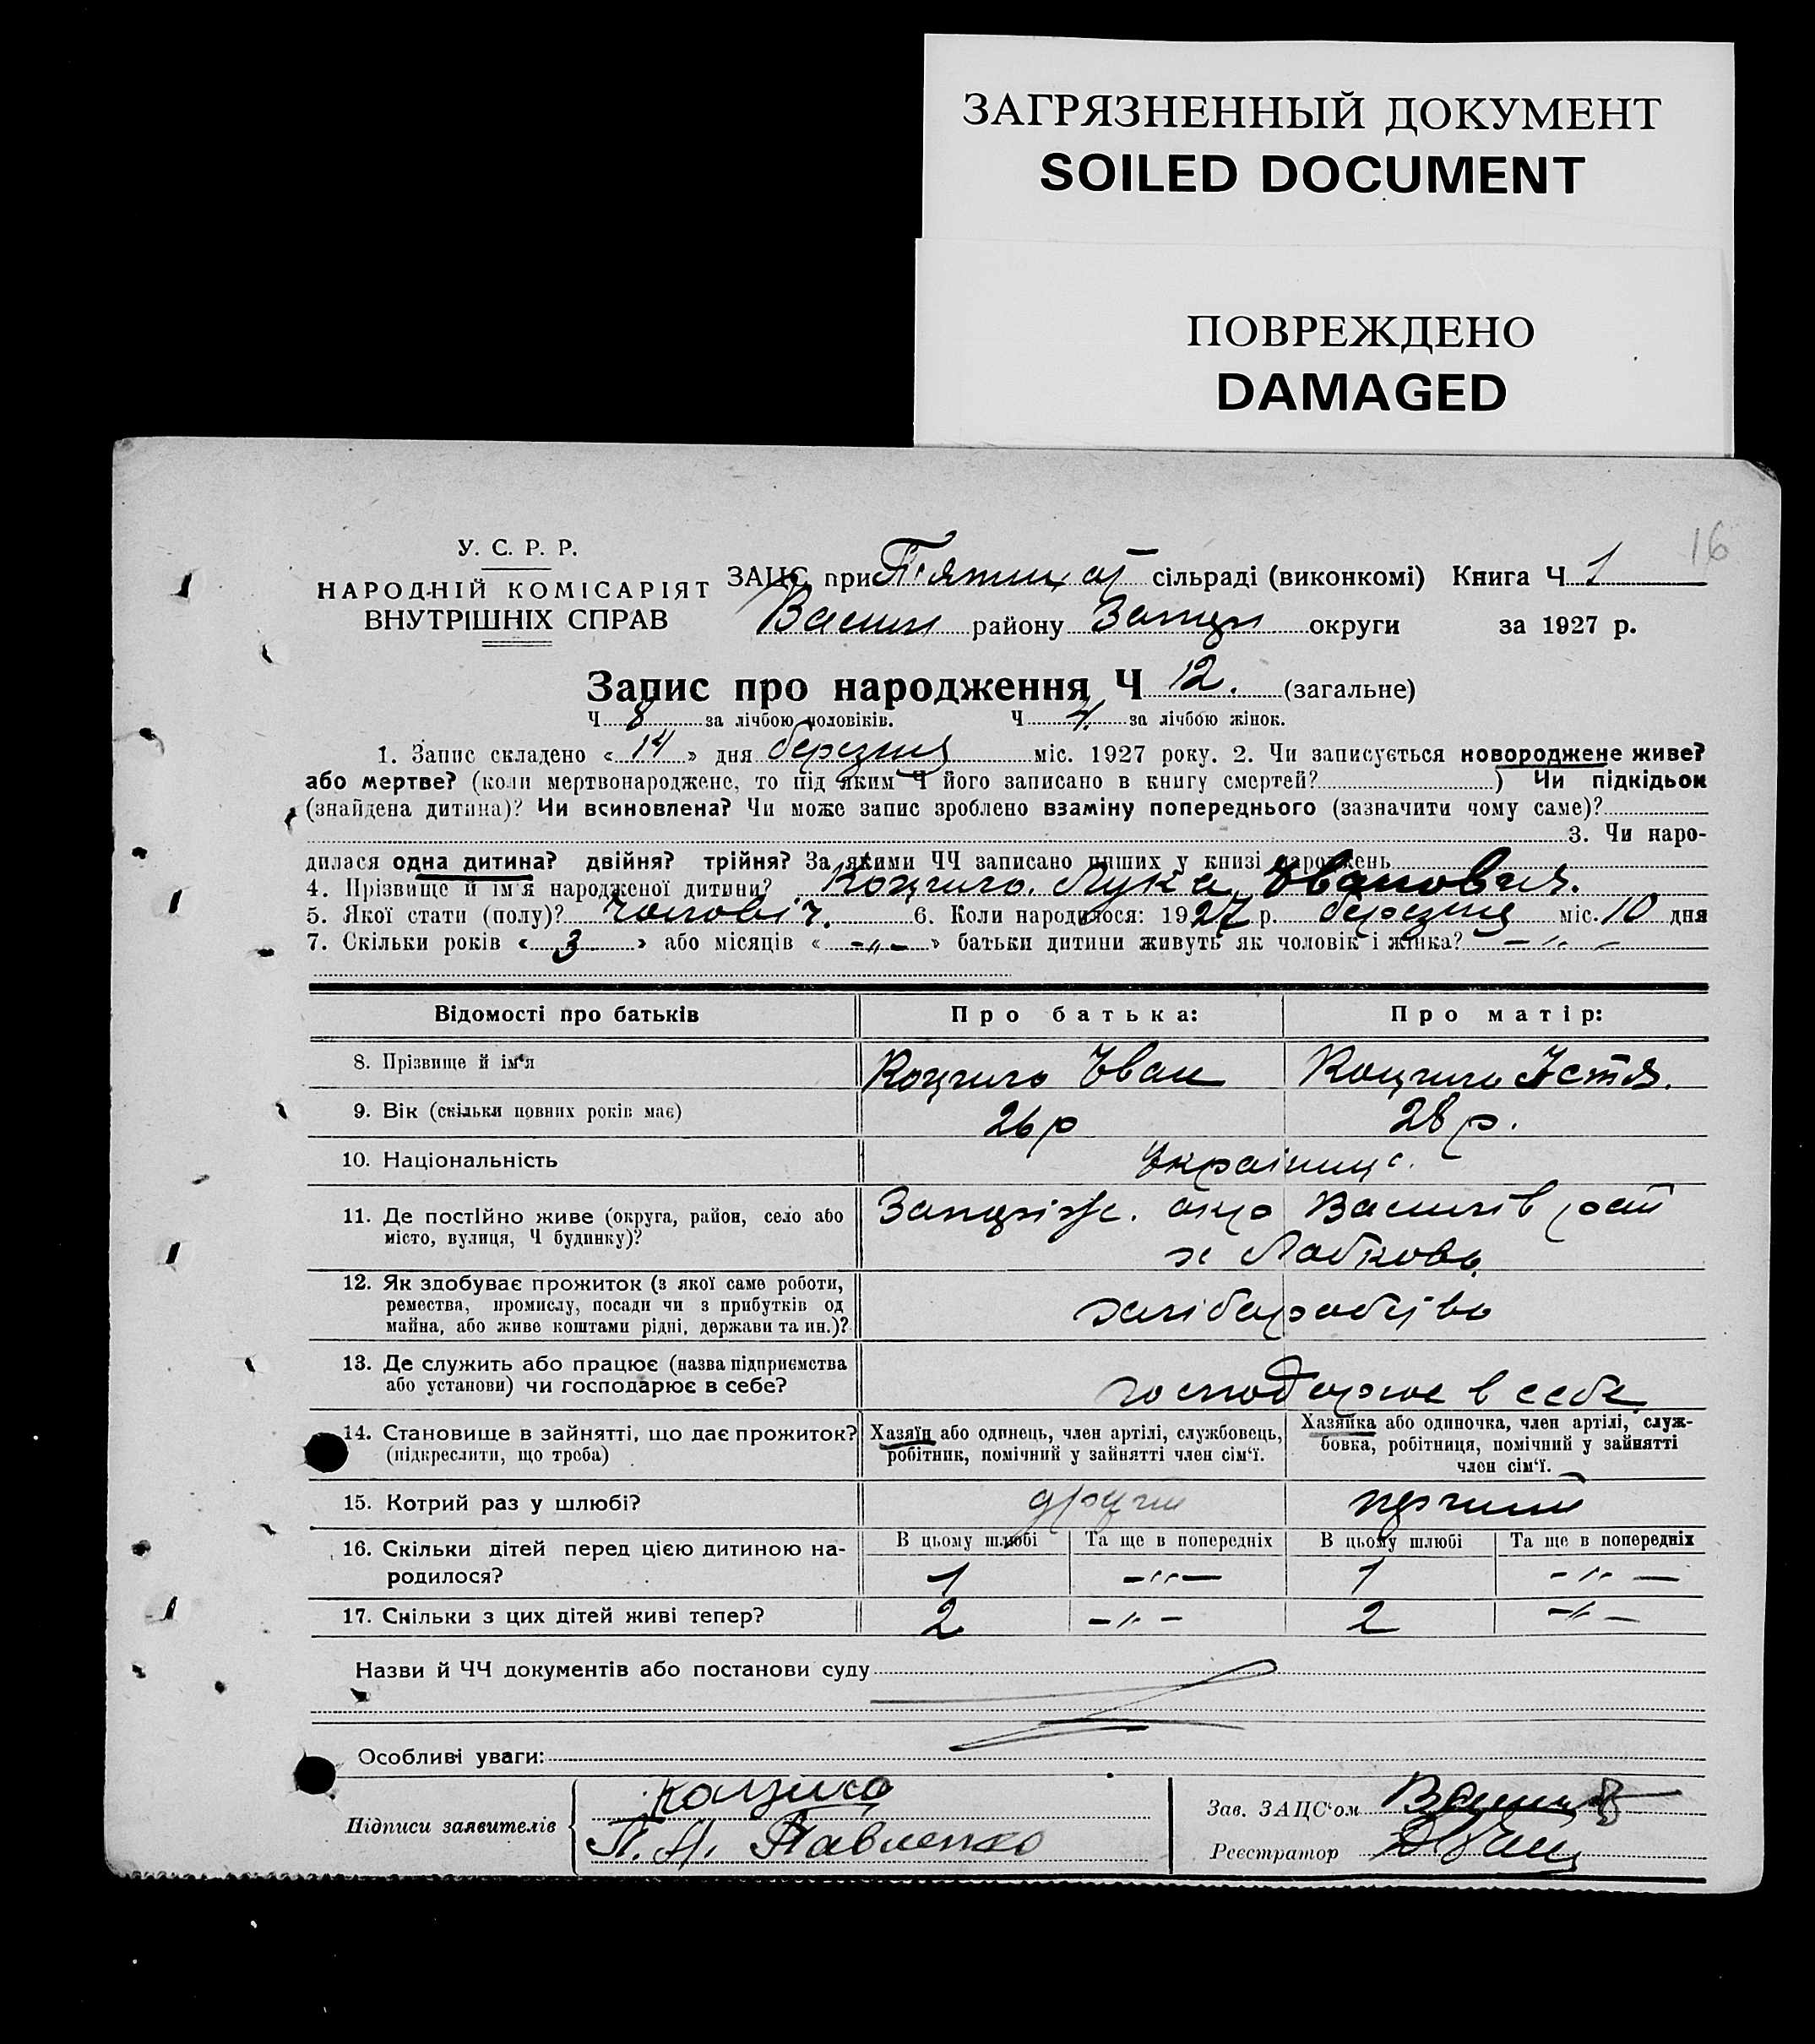 ЗАГРЯЗНЕННЫЙ ДОКУМЕНТ
SOILED DOCUMENT
ПОВРЕЖДЕНО
DAMAGED
16
У. С. Р. Р.
НАРОДНІЙ КОМІСАРІЯТ
ВНУТРІШНІХ СПРАВ
ЗАЦС при сільраді (виконкомі) Книга Ч 1
Васил району округи за 1927 р.
Запис про народження Ч 12. (загальне)
Ч 8 за лічбою чоловіків. Ч 4. за лічбою жінок.
1. Запис складено « 14 » дня березня міс. 1927 року. 2. Чи записується новороджене живе?
або мертве? (коли мертвонароджене, то під яким Ч його записано в книгу смертей? ) Чи підкідьок
(знайдена дитина)? Чи всиновлена? Чи може запис зроблено взаміну попереднього (зазначити чому саме)?
3. Чи наро-
дилася одна дитина? двійня? трійня? За якими ЧЧ записано инших у книзі народжень
4. Прізвище й ім'я народженої дитини? Лука Іванович.
5. Якої стати (полу)? чоловіч. 6. Коли народилося: 1927 р. березня міс. 10 дня
7. Скільки років « 3 » або місяців « -„- » батьки дитини живуть як чоловік і жінка? -„-
Відомості про батьків
Про батька:
Про матір:
8. Прізвище й ім'я
Іван
Устя.
9. Вік (скільки повних років має)
26 р
28 р.
10. Національність
11. Де постійно живе (округа, район, село або
місто, вулиця, Ч будинку)?
Запоріж. окр Василів рай
12. Як здобуває прожиток (з якої саме роботи,
ремества, промислу, посади чи з прибутків од
майна, або живе коштами рідні, держави та ин.)?
хліборобство
13. Де служить або працює (назва підприємства
або установи) чи господарює в себе?
господарює в себе
14. Становище в зайнятті, що дає прожиток?
(підкреслити, що треба)
Хазяїн або одинець, член артілі, службовець,
робітник, помічний у зайнятті член сім'ї.
Хазяйка або одиночка, член артілі, служ-
бовка, робітниця, помічний у зайнятті
член сім'ї.
15. Котрий раз у шлюбі?
другий
перший
16. Скільки дітей перед цією дитиною на-
родилося?
В цьому шлюбі
Та ще в попередніх
В цьому шлюбі
Та ще в попередніх
1 -„- 1 -„-
17. Скільки з цих дітей живі тепер?
2 -„- 2 -„-
Назви й ЧЧ документів або постанови суду
Особливі уваги:
Підписи заявителів
П. А. Павленко
Зав. ЗАЦС'ом
Реєстратор